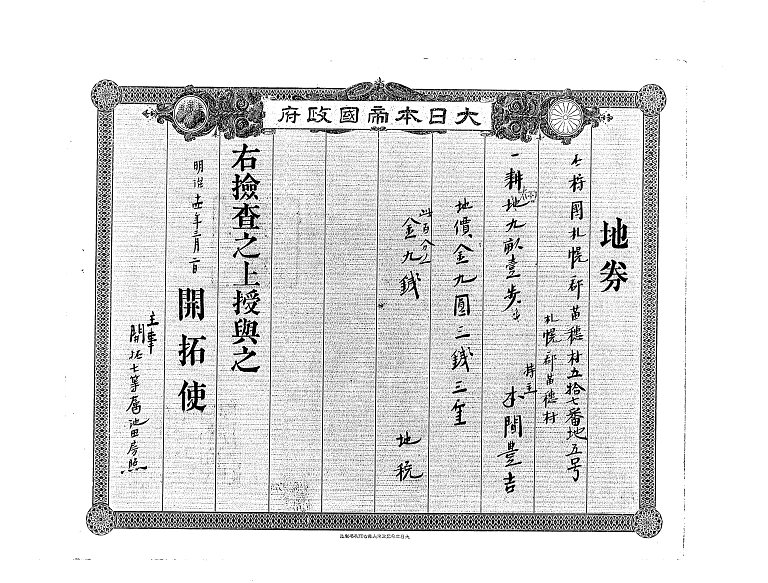 大日本帝國政府
地券
石狩國札幌郡苗穂村五拾七番地五号
札幌郡苗穂村
持主
本間豊吉
一耕地九畝壹歩
地價金九圓三錢三厘
此百分ノ一
金九錢
地税
右撿査之上授與之
明治年二月一日
開拓使
主事
開拓七等属池田房照